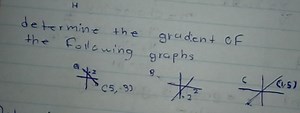 H
determine the gradent OF
the Following graphs
a 2 (5,-3) B. 2 2 C (1,5)